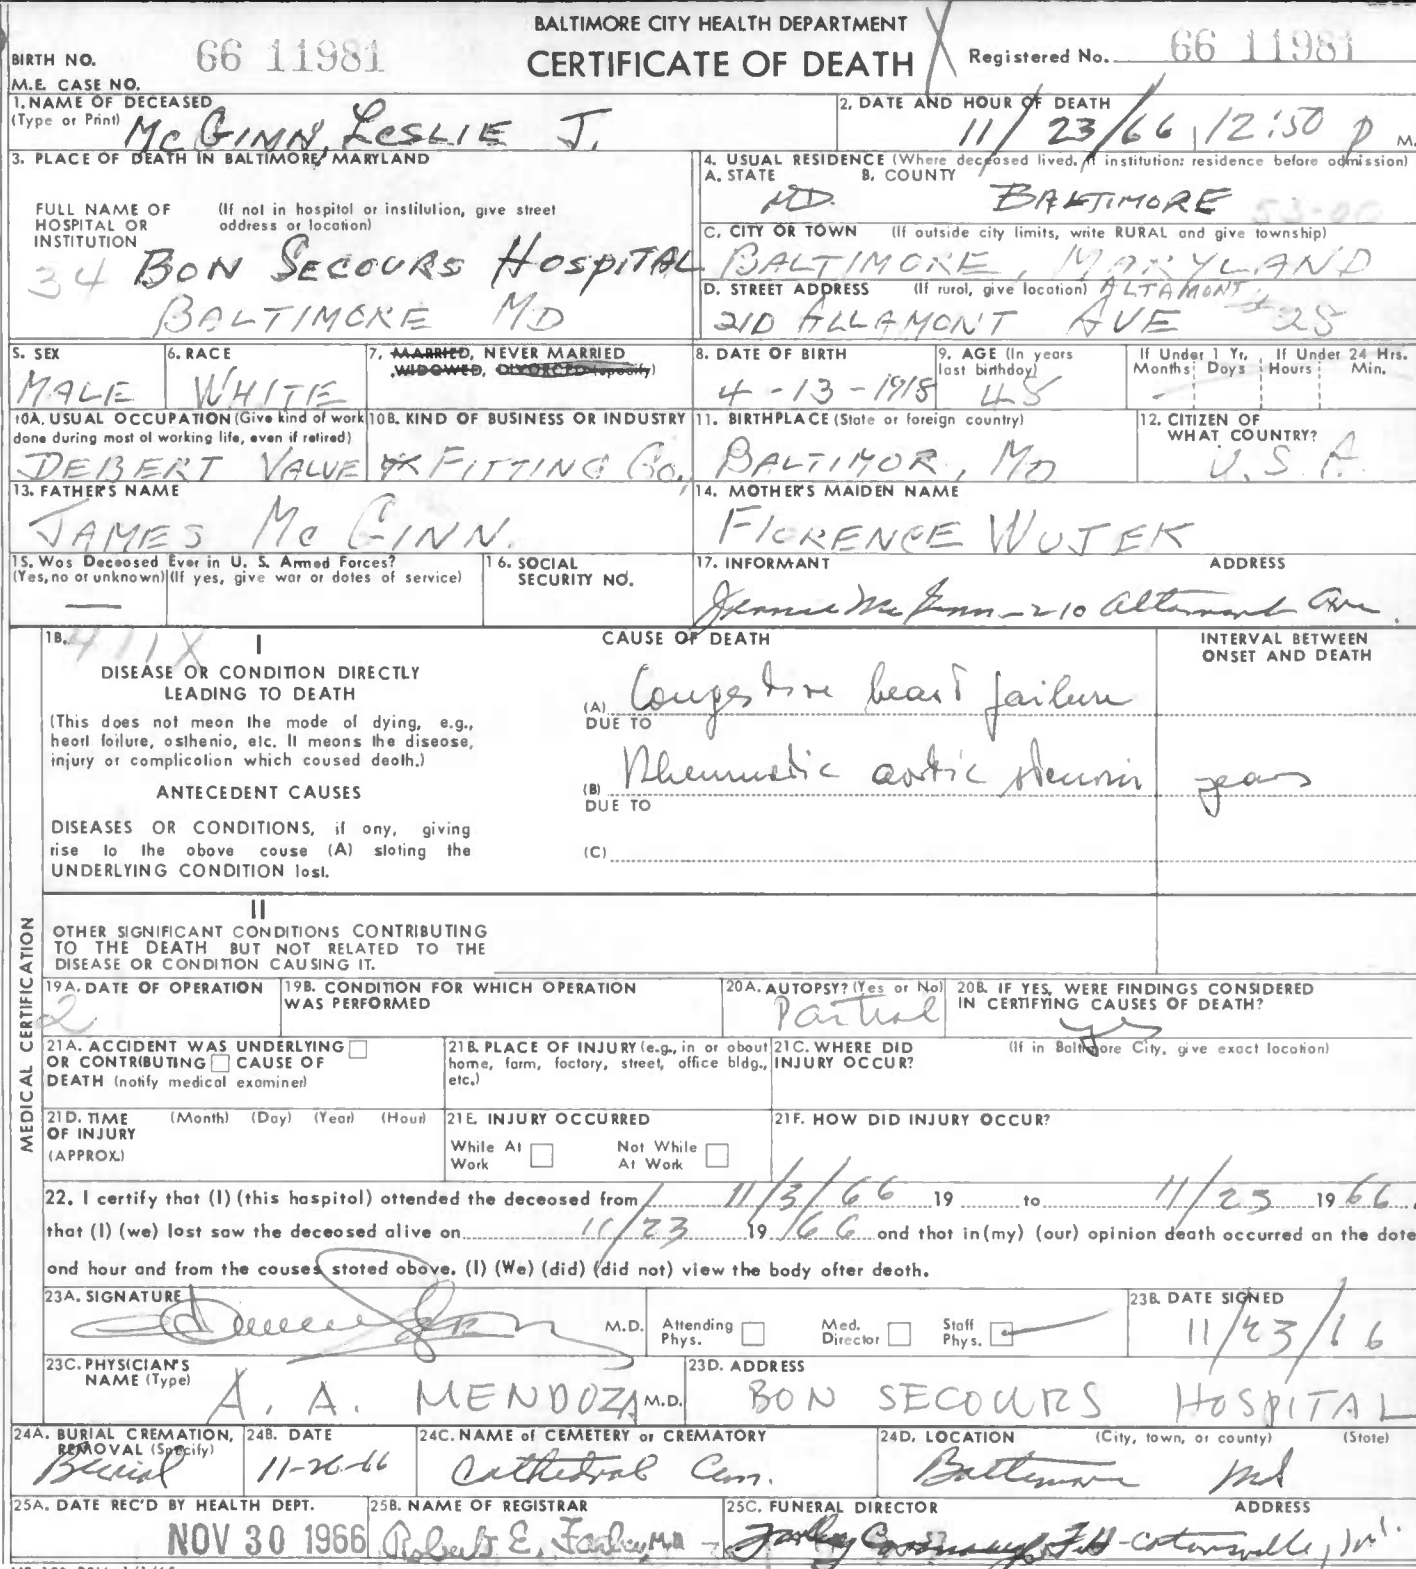 BALTIMORE CITY HEALTH DEPARTMENT
CERTIFICATE OF DEATH
BIRTH NO. 66 11981
Registered No. 66 11981
M.E. CASE NO.
1. NAME OF DECEASED
(Type or Print) McGINN, LESLIE J.
2. DATE AND HOUR OF DEATH
11/23/66 12:50 P M.
3. PLACE OF DEATH IN BALTIMORE, MARYLAND
FULL NAME OF HOSPITAL OR INSTITUTION
(If not in hospital or institution, give street address or location)
34 BON SECOURS HOSPITAL
BALTIMORE MD
4. USUAL RESIDENCE (Where deceased lived. If institution: residence before admission)
A. STATE B. COUNTY
MD. BALTIMORE 53-00
C. CITY OR TOWN (If outside city limits, write RURAL and give township)
BALTIMORE, MARYLAND
D. STREET ADDRESS (If rural, give location) ALTAMONT
210 ALLAMONT AVE 28
5. SEX
MALE
6. RACE
WHITE
7. MARRIED, NEVER MARRIED
WIDOWED, DIVORCED (specify)
8. DATE OF BIRTH
4-13-1918
9. AGE (In years last birthday)
48
If Under 1 Yr. If Under 24 Hrs.
Months Days Hours Min.
10A. USUAL OCCUPATION (Give kind of work done during most of working life, even if retired)
10B. KIND OF BUSINESS OR INDUSTRY
DEBERT VALUE FITTING Co.,
11. BIRTHPLACE (State or foreign country)
BALTIMOR, MD
12. CITIZEN OF WHAT COUNTRY?
U.S.A.
13. FATHER'S NAME
JAMES McGINN.
14. MOTHER'S MAIDEN NAME
FLORENCE WUJEK
15. Was Deceased Ever in U. S. Armed Forces?
(Yes, no or unknown) (If yes, give war or dates of service)
—
16. SOCIAL SECURITY NO.
17. INFORMANT ADDRESS
Jennie McGinn - 210 Altamont Ave.
MEDICAL CERTIFICATION
18. 411X
I
DISEASE OR CONDITION DIRECTLY LEADING TO DEATH
(This does not mean the mode of dying, e.g., heart failure, asthenia, etc. It means the disease, injury or complication which caused death.)
ANTECEDENT CAUSES
DISEASES OR CONDITIONS, if any, giving rise to the above cause (A) stating the UNDERLYING CONDITION last.
CAUSE OF DEATH
INTERVAL BETWEEN ONSET AND DEATH
(A) Congestive heart failure
DUE TO
(B) Rheumatic aortic stenosis years
DUE TO
(C)
II
OTHER SIGNIFICANT CONDITIONS CONTRIBUTING TO THE DEATH BUT NOT RELATED TO THE DISEASE OR CONDITION CAUSING IT.
19A. DATE OF OPERATION
2
19B. CONDITION FOR WHICH OPERATION WAS PERFORMED
20A. AUTOPSY? (Yes or No)
Partial
20B. IF YES, WERE FINDINGS CONSIDERED IN CERTIFYING CAUSES OF DEATH?
yes
21A. ACCIDENT WAS UNDERLYING OR CONTRIBUTING CAUSE OF DEATH (notify medical examiner)
21B. PLACE OF INJURY (e.g., in or about home, farm, factory, street, office bldg., etc.)
21C. WHERE DID INJURY OCCUR? (If in Baltimore City, give exact location)
21D. TIME OF INJURY (APPROX.) (Month) (Day) (Year) (Hour)
21E. INJURY OCCURRED
While At Work Not While At Work
21F. HOW DID INJURY OCCUR?
22. I certify that (I) (this hospital) attended the deceased from 11/3/66 19 to 11/23 1966,
that (I) (we) last saw the deceased alive on 11/23 1966 and that in (my) (our) opinion death occurred on the date
and hour and from the causes stated above. (I) (We) (did) (did not) view the body after death.
23A. SIGNATURE
M.D. Attending Phys. Med. Director Staff Phys.
23B. DATE SIGNED
11/23/66
23C. PHYSICIAN'S NAME (Type)
A. A. MENDOZA M.D.
23D. ADDRESS
BON SECOURS HOSPITAL
24A. BURIAL CREMATION, REMOVAL (Specify)
Burial
24B. DATE
11-26-66
24C. NAME of CEMETERY or CREMATORY
Cathedral Cem.
24D. LOCATION (City, town, or county) (State)
Baltimore Md
25A. DATE REC'D BY HEALTH DEPT.
NOV 30 1966
25B. NAME OF REGISTRAR
Robert E. Farber, M.D.
25C. FUNERAL DIRECTOR ADDRESS
Farley Cavanaugh F.H - Catonsville, Md.